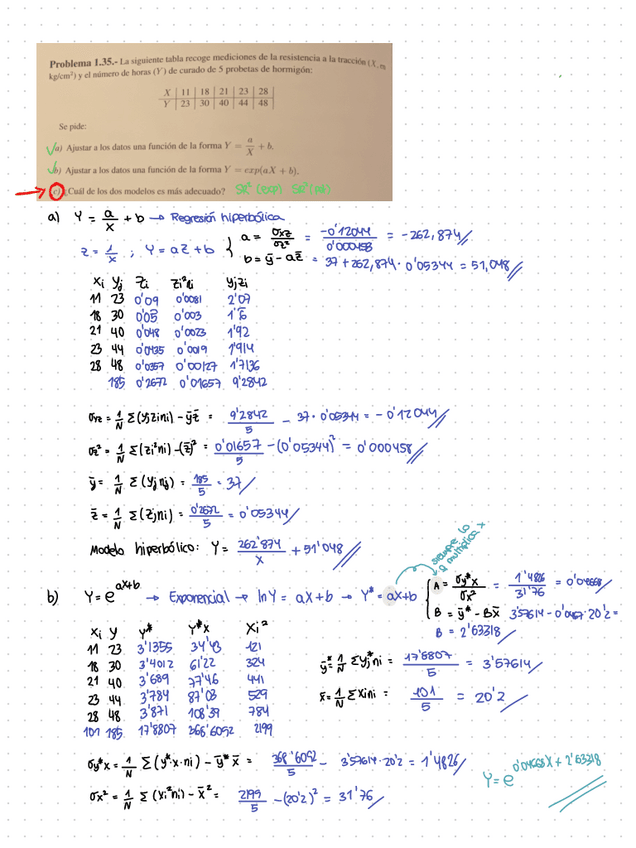 Problema 1.35.- La siguiente tabla recoge mediciones de la resistencia a la tracción (X, en
kg/cm²) y el número de horas (Y) de curado de 5 probetas de hormigón:
X 11 18 21 23 28
Y 23 30 40 44 48
Se pide:
a) Ajustar a los datos una función de la forma Y = a/X + b.
b) Ajustar a los datos una función de la forma Y = exp(aX + b).
c) Cuál de los dos modelos es más adecuado?
a) Y = a/x + b → Regresión hiperbólica
z = 1/x ; Y = aZ + b { a = σxz/σz² = -0'12044/0'000458 = -262,874
b = ȳ - az̄ = 37 + 262,874 · 0'05344 = 51,048
xi yj zi zi²ni yjzi
11 23 0'09 0'0081 2'09
18 30 0'05 0'003 1'6
21 40 0'048 0'0023 1'92
23 44 0'0435 0'0019 1'914
28 48 0'0357 0'00127 1'7136
185 0'2672 0'01657 9'2842
σyz = 1/N Σ(yjzini) - ȳz̄ = 9'2842/5 - 37 · 0'05344 = -0'12044
σz² = 1/N Σ(zi²ni) - (z̄)² = 0'01657/5 - (0'05344)² = 0'000458
ȳ = 1/N Σ(yjnj) = 185/5 = 37
z̄ = 1/N Σ(zjni) = 0'2672/5 = 0'05344
Modelo hiperbólico: Y = 262'874/x + 51'048
siempre lo
q multiplica x
b) Y = e^ax+b → Exponencial → lnY = ax + b → Y* = ax+b { A = σy*x/σx² = 1'4826/31'76 = 0'04668
B = ȳ* - Bx̄ 3'57614 - 0'0467 · 20'2 =
B = 2'63318
xi y Y* Y*x xi²
11 23 3'1355 34'43 121
18 30 3'4012 61'22 324
21 40 3'689 77'46 441
23 44 3'784 87'03 529
28 48 3'871 108'39 784
101 185 17'8807 368'6092 2199
ȳ* = 1/N Σyj*ni = 17'8807/5 = 3'57614
x̄ = 1/N Σxini = 101/5 = 20'2
σy*x = 1/N Σ(y*x·ni) - ȳ* x̄ = 368'6092/5 - 3'57614·20'2 = 1'4826
σx² = 1/N Σ(xi²ni) - x̄² = 2199/5 - (20'2)² = 31'76
Y = e^0'04668X + 2'63318